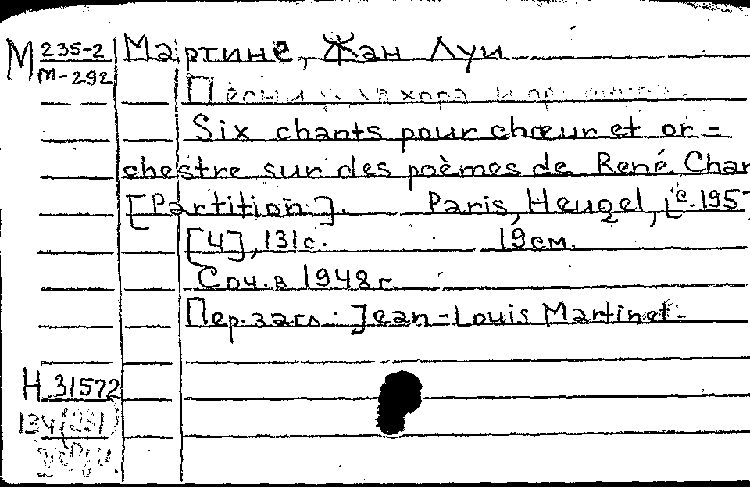 М 235-2 Мартине, Жан Луи
М-292
Песни для хора и
Six chants pour chœur et or-
chestre sur des poèmes de René Char
[Partition]. Paris, Heugel, [c. 195
[4], 131 с. 19 см.
Соч. в 1948 г
Пер. загл.: Jean-Louis Martinet.
Н 31572
134